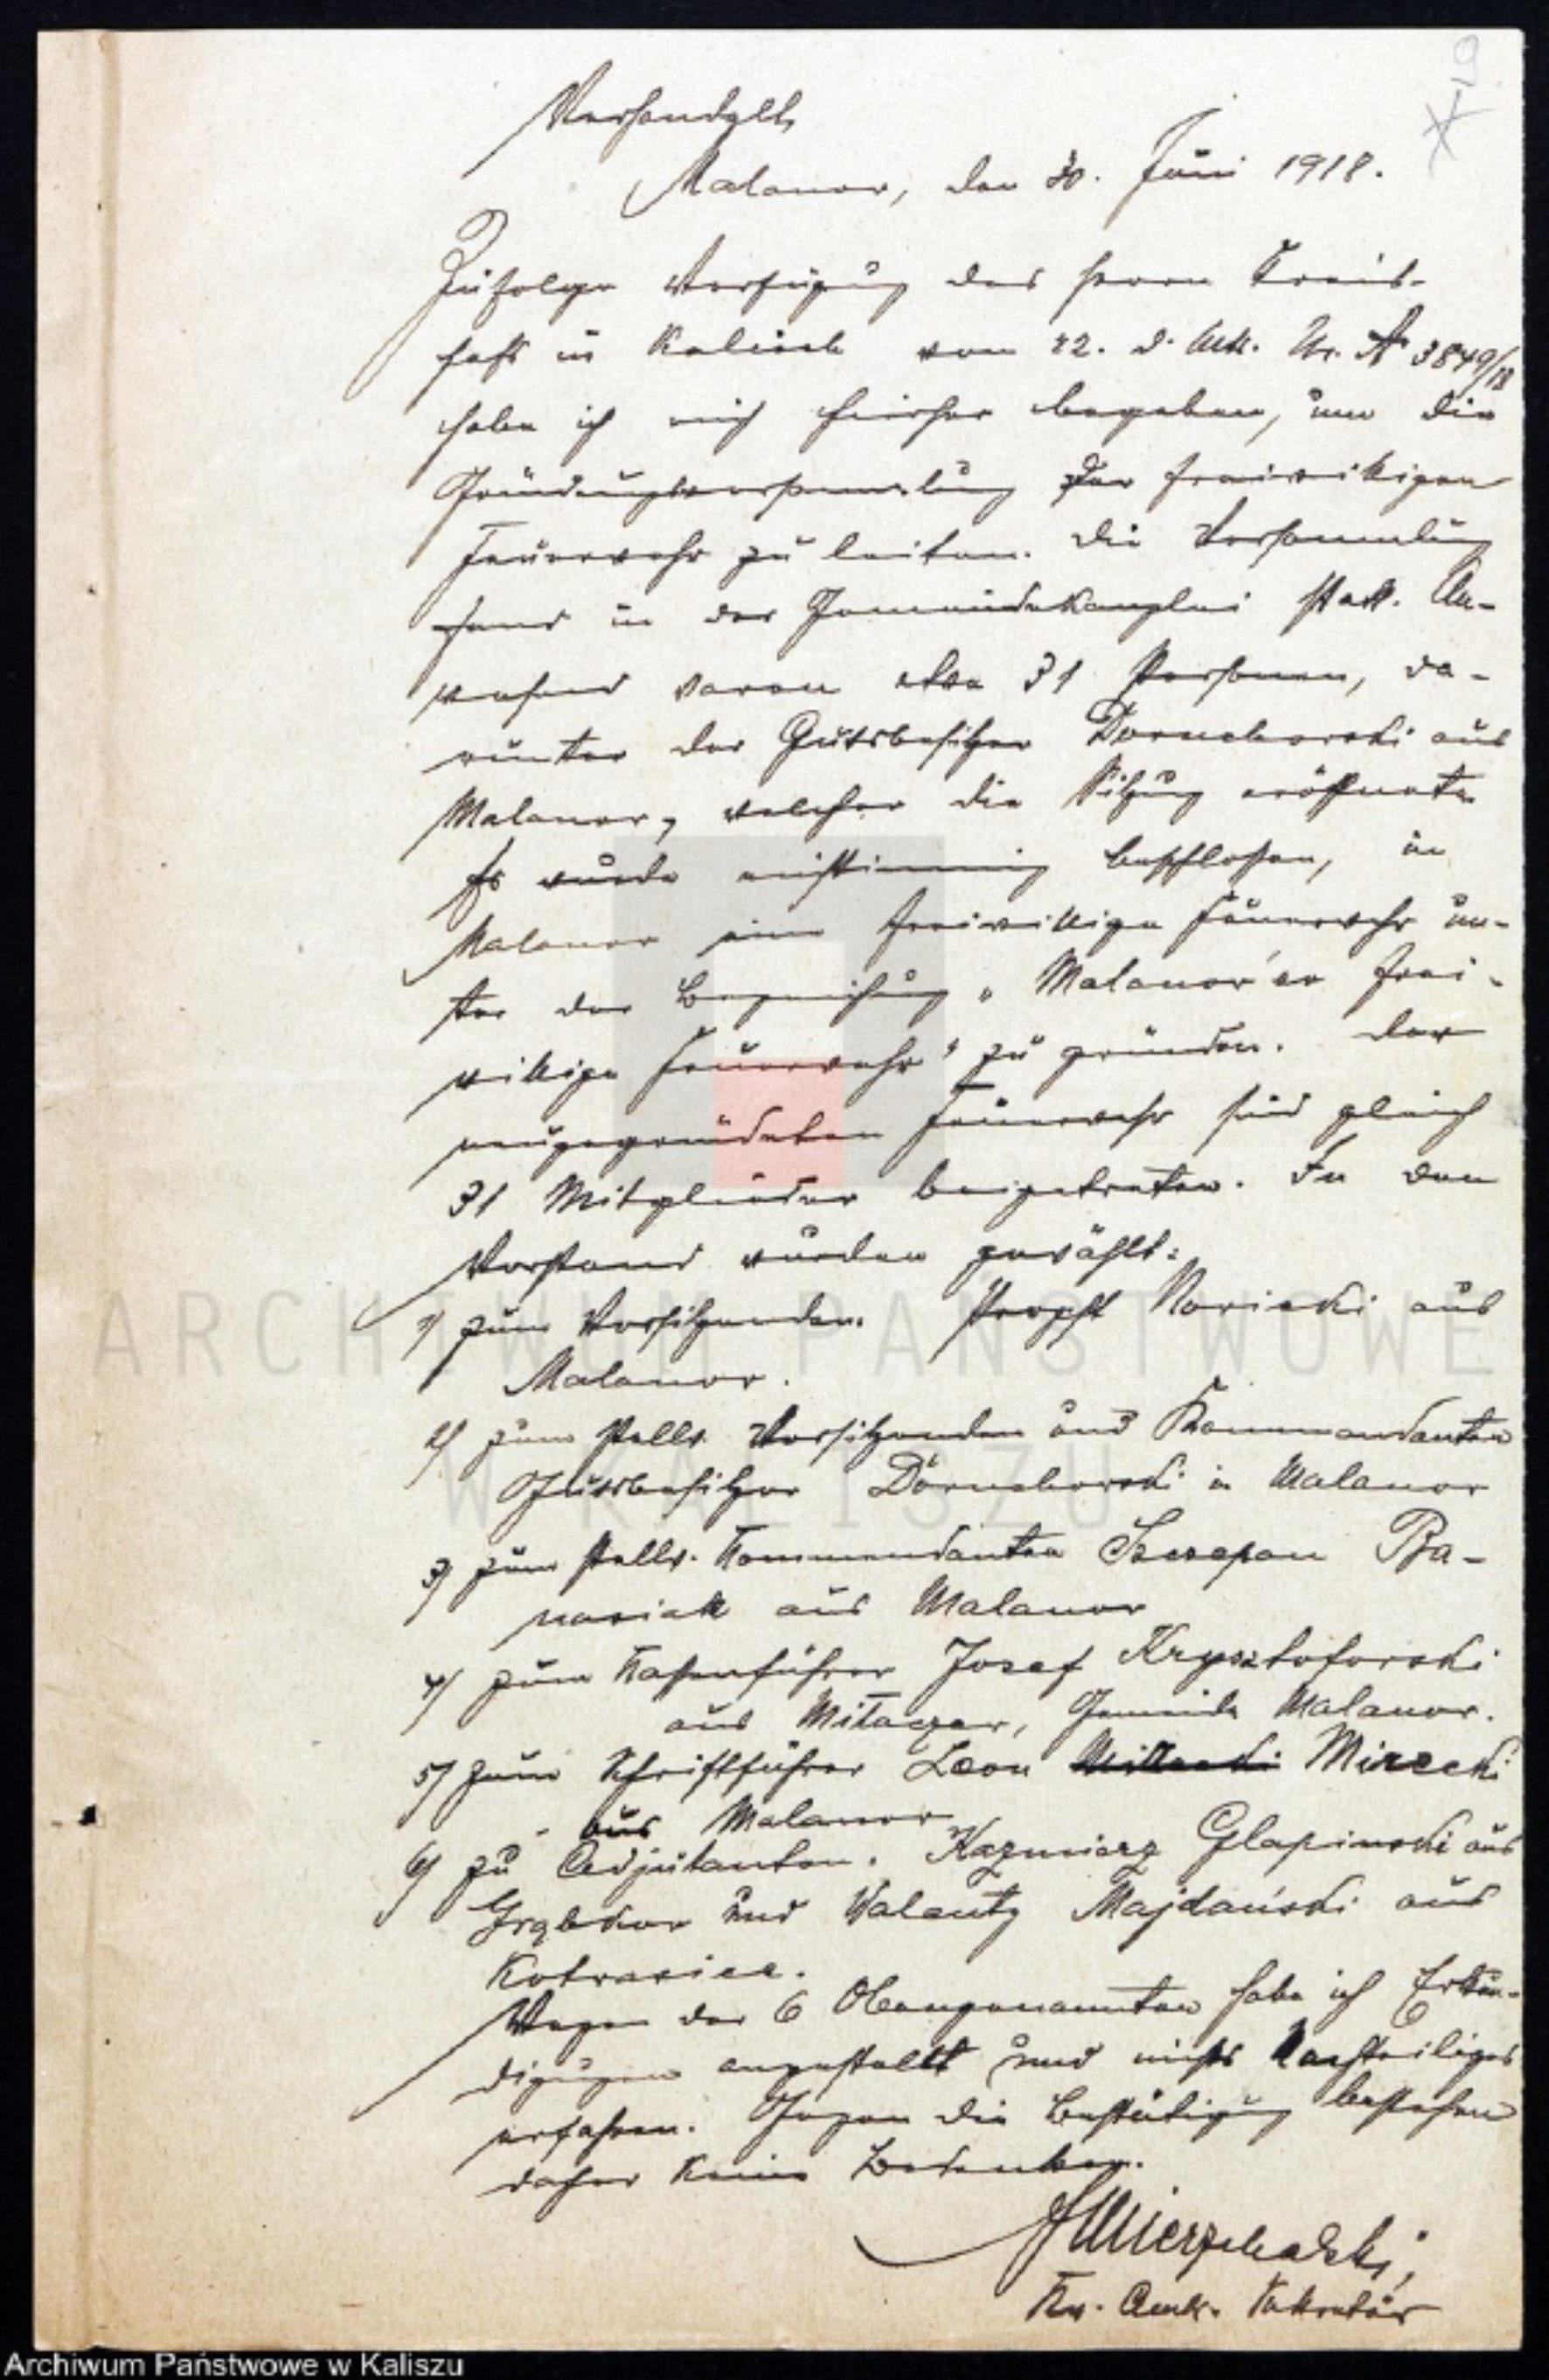 9
Verhandelt
Malanow, den 30. Juni 1918.
Zufolge Verfügung des Herrn Kreis-
chefs in Kalisch vom 22. d. Mts. Nr. A 3849/18
habe ich mich hierher begeben, um die
Gründungsversammlung der freiwilligen
Feuerwehr zu leiten. Die Versammlung
fand in der Gemeindekanzlei statt. An-
wesend waren etwa 31 Personen, da-
runter der Gutsbesitzer Dornchorski aus
Malanow, welcher die Sitzung eröffnete
Es wurde einstimmig beschlossen, in
Malanow eine freiwillige Feuerwehr un-
ter der Bezeichnung „Malanow'er frei-
willige Feuerwehr" zu gründen. Der
neugegründeten Feuerwehr sind gleich
31 Mitglieder beigetreten. In den
Vorstand wurden gewählt:
1) zum Vorsitzenden. Propst Nowicki aus
Malanow.
2) zum stellv. Vorsitzenden und Kommandanten
Gutsbesitzer Dornchorski in Malanow
3) zum stellv. Kommandanten Szczepan Ba-
nasiak aus Malanow
4) zum Kassenführer Josef Krysztoforski
aus Gemeinde Malanow.
5) zum Schriftführer Leon Mirecki
aus Malanow
6) zu Adjutanten. Kazmierz Glapinski aus
Grąbkow und Walenty Majdański aus
Kotwasice.
Wegen der 6 Obengenannten habe ich Erkun-
digungen angestellt und nichts Nachteiliges
erfahren. Gegen die Bestätigung bestehen
daher keine Bedenken.
Kr. Amts. Sekretär
ARCHIWUM PAŃSTWOWE
W KALISZU
Archiwum Państwowe w Kaliszu